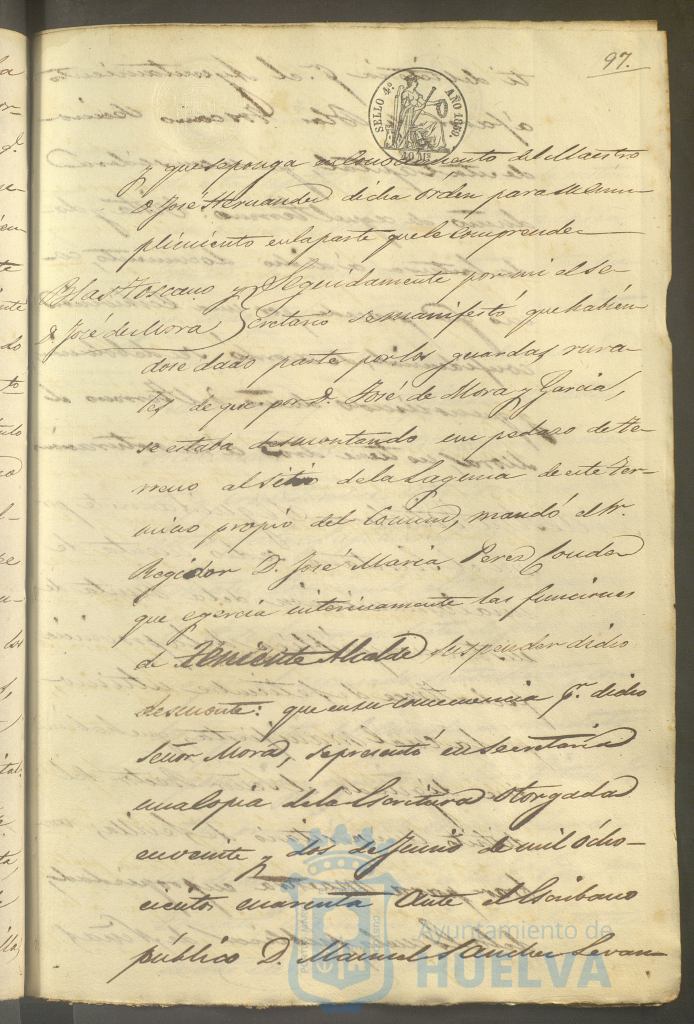 97.
SELLO 4º AÑO 1860.
40 Ms
y que se ponga en conocimiento del Maestro
D. José Hernandez dicha orden para su cum-
plimiento en la parte que le comprende
Blas Toscano y
D. José de Mora
Seguidamente por mi el Se
cretario se manifestó que habien
dose dado parte por los guardas rura
les de que por D. José de Mora y Garcia,
se estaba desmontando un pedazo de te-
rreno al sitio de la Laguna de este ter-
mino propio del Comun, mandó el Sr.
Regidor D. José Maria Perez Conde
que egercia interinamente las funciones
de Teniente Alcalde suspender dicho
desmonte: que en su consecuencia pr. dicho
Señor Mora, se presentó en Secretaria
una copia de la Escritura otorgada
en veinte y dos de Junio de mil ocho-
cientos cuarenta ante el Escribano
público D. Manuel Sanchez
Ayuntamiento de
HUELVA